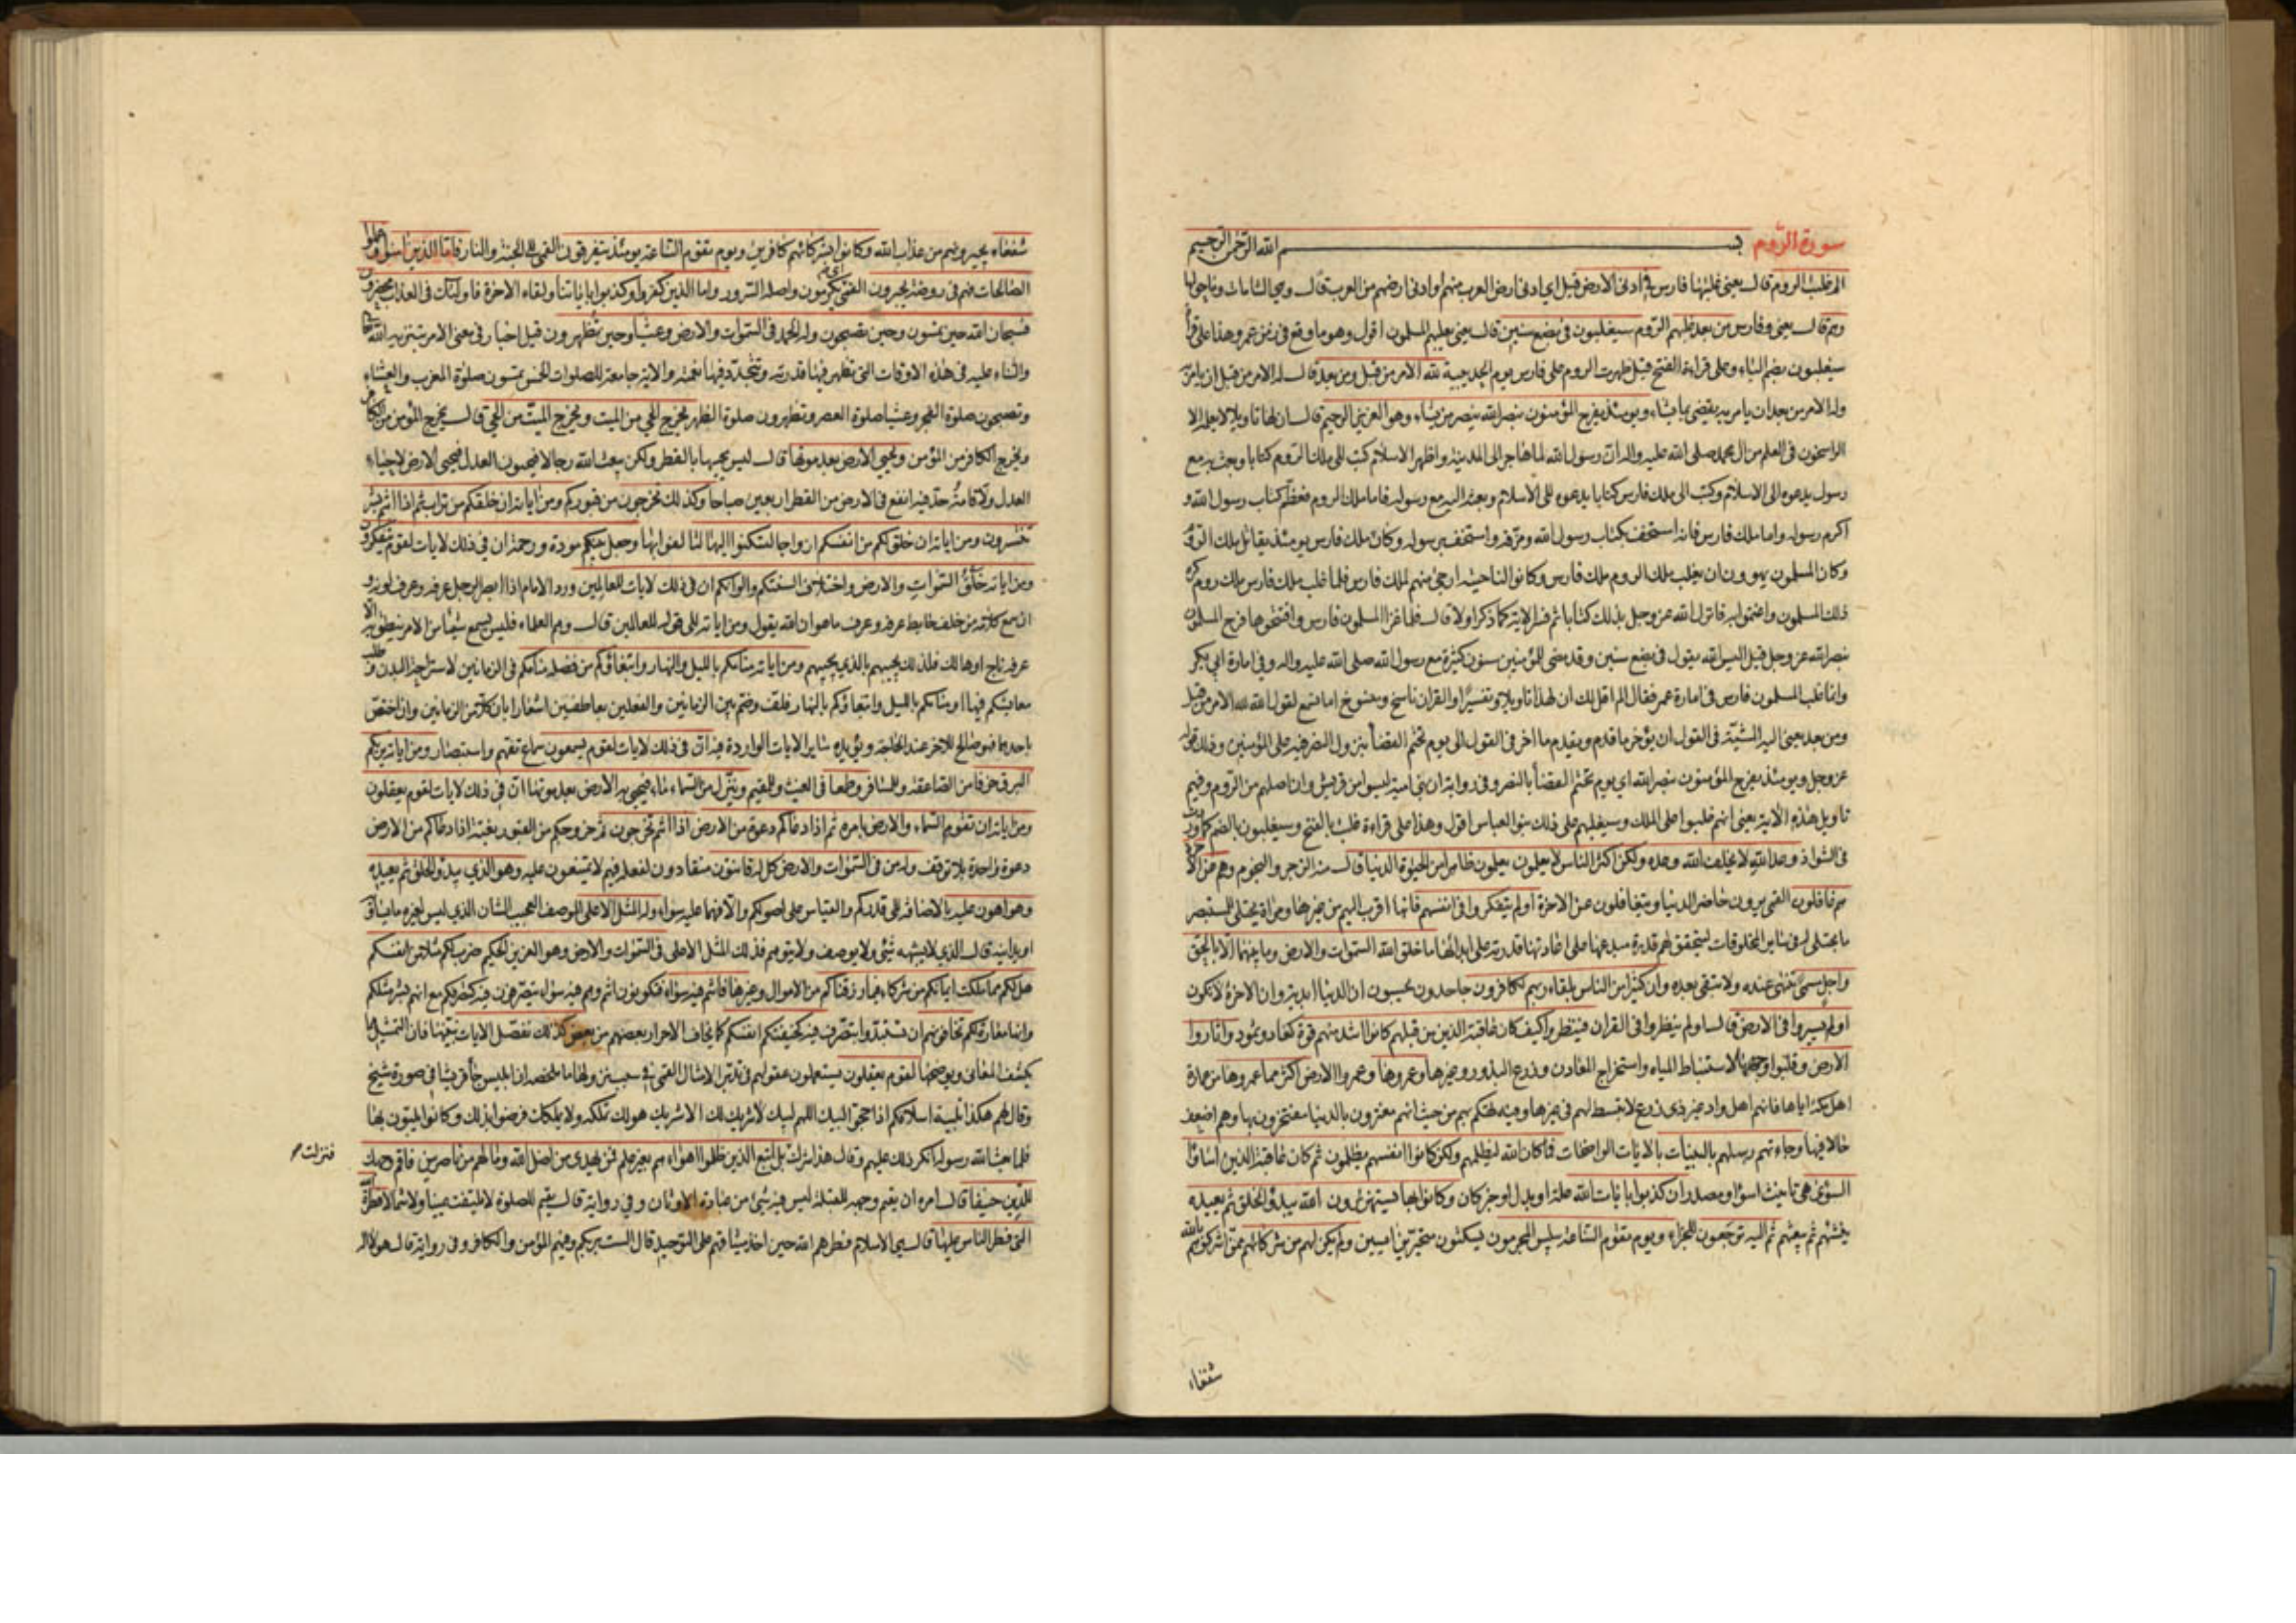 سورة الروم بسم الله الرحمن الرحيم
الم غلبت الروم قال يعني غلبتها فارس في ادنى الارض قيل اي ادنى ارض العرب منهم او ادنى ارضهم من العرب قال وهي الشامات وما حولها
وهم قال يعني وفارس من بعد غلبهم الروم سيغلبون في بضع سنين قال يعني يغلبهم المسلمون اقول وهو ما وقع في زمن عمر وهذا على قراءة
سيغلبون بضم الياء وعلى قراءة الفتح قيل ظهرت الروم على فارس يوم الحديبية لله الامر من قبل ومن بعد قال له الامر من قبل ان يامر به
وله الامر من بعد ان يامر به يقضي بما يشاء ويومئذ يفرح المؤمنون بنصر الله ينصر من يشاء وهو العزيز الرحيم قال ان لها تاويلا لا يعلمه الا
الراسخون في العلم من ال محمد صلى الله عليه واله ان رسول الله لما هاجر الى المدينة واظهر الاسلام كتب الى ملك الروم كتابا وبعث به مع
رسول يدعوه الى الاسلام وكتب الى ملك فارس كتابا يدعوه الى الاسلام وبعثه اليه مع رسوله فاما ملك الروم فعظم كتاب رسول الله و
اكرم رسوله واما ملك فارس فانه استخف بكتاب رسول الله ومزقه واستخف برسوله وكان ملك فارس يومئذ يقاتل ملك الروم
وكان المسلمون يهوون ان يغلب ملك الروم ملك فارس وكانوا لناحيته ارجى منهم لملك فارس فلما غلب ملك فارس ملك روم كره
ذلك المسلمون واغتموا به فانزل الله عز وجل بذلك كتابا ثم فسر الاية كما ذكر اولا قال فلما غزا المسلمون فارس وافتتحوها فرح المسلمون
بنصر الله عز وجل قيل اليس الله يقول في بضع سنين وقد مضى للمؤمنين سنون كثيرة مع رسول الله صلى الله عليه واله وفي امارة ابي بكر
وانما غلب المسلمون فارس في امارة عمر فقال الم اقل لك ان لهذا تاويلا وتفسيرا والقران ناسخ ومنسوخ اما تسمع لقول الله لله الامر من قبل
ومن بعد يعني اليه المشية في القول ان يؤخر ما قدم ويقدم ما اخر في القول الى يوم تحتم القضاء بنزول النصر فيه على المؤمنين وذلك قوله
عز وجل ويومئذ يفرح المؤمنون بنصر الله اي يوم تحتم القضاء بالنصر وفي رواية ان بني امية ليسوا من قريش وان اصلهم من الروم وفيهم
تاويل هذه الاية يعني انهم غلبوا على الملك وسيغلبهم على ذلك بنو العباس اقول وهذا على قراءة غلبت بالفتح وسيغلبون بالضم كما وردت
في الشواذ وعد الله لا يخلف الله وعده ولكن اكثر الناس لا يعلمون يعلمون ظاهرا من الحيوة الدنيا قال منه الزجر والنجوم وهم عن الاخرة
هم غافلون القمي يرون حاضر الدنيا ويتغافلون عن الاخرة اولم يتفكروا في انفسهم فانها اقرب اليهم من غيرها ومراة يجتلى للمستبصر
ما يجتلى له في ساير المخلوقات ليتحقق لهم قدرة مبدعها على اعادتها قدرته على ابدائها ما خلق الله السموات والارض وما بينهما الا بالحق
واجل مسمى تنتهي عنده ولا تبقى بعده وان كثيرا من الناس بلقاء ربهم لكافرون جاحدون يحسبون ان الدنيا ابدية وان الاخرة لا تكون
اولم يسيروا في الارض قال اولم ينظروا في القران فينظروا كيف كان عاقبة الذين من قبلهم كانوا اشد منهم قوة كعاد وثمود واثاروا
الارض وقلبوا وجهها لاستنباط المياه واستخراج المعادن وزرع البذور وغيرها وعمروها وعمروا الارض اكثر مما عمروها من عمارة
اهل مكة اياها فانهم اهل واد غير ذي زرع لا تبسط لهم في غيرها وفيه تهكم بهم من حيث انهم مغترون بالدنيا مفتخرون بها وهم اضعف
حالا فيها وجاءتهم رسلهم بالبينات بالايات الواضحات فما كان الله ليظلمهم ولكن كانوا انفسهم يظلمون ثم كان عاقبة الذين اساؤا
السوئ هي تانيث اسوا او مصدر ان كذبوا بايات الله علة او بدل او خبر كان وكانوا بها يستهزئون الله يبدؤ الخلق ثم يعيده
يبعثهم ثم اليه ترجعون للجزاء ويوم تقوم الساعة يبلس المجرمون يسكتون متحيرين ايسين ولم يكن لهم من شركائهم ممن اشركوهم بالله
شفعاء
شفعاء يجيرونهم من عذاب الله وكانوا بشركائهم كافرين ويوم تقوم الساعة يومئذ يتفرقون القمي الى الجنة والنار فاما الذين امنوا وعملوا
الصالحات فهم في روضة يحبرون القمي اي يكرمون واصله السرور واما الذين كفروا وكذبوا باياتنا ولقاء الاخرة فاولئك في العذاب محضرون
فسبحان الله حين تمسون وحين تصبحون وله الحمد في السموات والارض وعشيا وحين تظهرون قيل اخبار في معنى الامر بتنزيه الله تعالى
والثناء عليه في هذه الاوقات التي تظهر فيها قدرته وتتجدد فيها نعمته والاية جامعة للصلوات الخمس تمسون صلوة المغرب والعشاء
وتصبحون صلوة الفجر وعشيا صلوة العصر وتظهرون صلوة الظهر يخرج الحي من الميت ويخرج الميت من الحي قال يخرج المؤمن من الكافر
ويخرج الكافر من المؤمن ويحيي الارض بعد موتها قال ليس يحييها بالقطر ولكن يبعث الله رجالا فيحيون العدل فتحيى الارض لاحياء
العدل ولاقامة حد فيه انفع في الارض من القطر اربعين صباحا وكذلك تخرجون من قبوركم ومن اياته ان خلقكم من تراب ثم اذا انتم بشر
تنتشرون ومن اياته ان خلق لكم من انفسكم ازواجا لتسكنوا اليها لتالفوا بها وجعل بينكم مودة ورحمة ان في ذلك لايات لقوم يتفكرون
ومن اياته خلق السموات والارض واختلاف السنتكم والوانكم ان في ذلك لايات للعالمين ورد الامام اذا ابصر الرجل عرفه وعرف لونه و
ان سمع كلامه من خلف حايط عرفه وعرف ما هو ان الله يقول ومن اياته الى قوله للعالمين قال وهم العلماء فليس يسمع شيئا من الامر ينطق به الا
عرفه ناج او هالك فلذلك يجيبهم بالذي يجيبهم ومن اياته منامكم بالليل والنهار وابتغاؤكم من فضله منامكم في الزمانين لاستراحة البدن وطلب
معاشكم فيهما او منامكم بالليل وابتغاؤكم بالنهار فلف وضم بين الزمانين والفعلين بعاطفين اشعارا بان كلا من الزمانين وان اختص
باحدهما فهو صالح للاخر عند الحاجة ويؤيده ساير الايات الواردة فيه ان في ذلك لايات لقوم يسمعون سماع تفهم واستبصار ومن اياته يريكم
البرق خوفا من الصاعقة وللمسافر وطمعا في الغيث وللمقيم وينزل من السماء ماء فيحيي به الارض بعد موتها ان في ذلك لايات لقوم يعقلون
ومن اياته ان تقوم السماء والارض بامره ثم اذا دعاكم دعوة من الارض اذا انتم تخرجون ثم خروجكم من القبور بغتة اذا دعاكم من الارض
دعوة واحدة بلا توقف وله من في السموات والارض كل له قانتون منقادون لفعله فيهم لا يمتنعون عليه وهو الذي يبدؤ الخلق ثم يعيده
وهو اهون عليه بالاضافة الى قدركم والقياس على اصولكم والا فهما عليه سواء وله المثل الاعلى الوصف العجيب الشان الذي ليس لغيره ما يساويه
او يدانيه قال الذي لا يشبهه شيء ولا يوصف ولا يتوهم فذلك المثل الاعلى في السموات والارض وهو العزيز الحكيم ضرب لكم مثلا من انفسكم
هل لكم مما ملكت ايمانكم من شركاء فيما رزقناكم من الاموال وغيرها فانتم فيه سواء فتكونون انتم وهم فيه سواء يتصرفون فيه كتصرفكم مع انهم بشر مثلكم
وانها معارة لكم تخافونهم ان تستبدوا بتصرف فيه كخيفتكم انفسكم كما يخاف الاحرار بعضهم من بعض كذلك نفصل الايات نبينها فان التمثيل مما
يكشف المعاني ويوضحها لقوم يعقلون يستعملون عقولهم في تدبر الامثال القمي في سبب نزولها ما ملخصه ان ابليس جاء قريشا في صورة شيخ
وقال لهم هكذا تلبية اسلافكم اذا حجوا لبيك اللهم لبيك لا شريك لك الا شريك هو لك تملكه ولا يملكك فرضوا بذلك وكانوا يلبون بهذا
فلما بعث الله رسوله انكر ذلك عليهم وقال هذا شرك بل اتبع الذين ظلموا اهواءهم بغير علم فمن يهدي من اضل الله وما لهم من ناصرين فاقم وجهك
فنزلت صح
للدين حنيفا قال امره ان يقيم وجهه للقبلة ليس فيه شيء من عبادة الاوثان وفي رواية قال يقيم للصلوة لا يلتفت يمينا ولا شمالا فطرة الله
التي فطر الناس عليها قال هي الاسلام فطرهم الله حين اخذ ميثاقهم على التوحيد قال الست بربكم وفيهم المؤمن والكافر وفي رواية قال هو لا اله